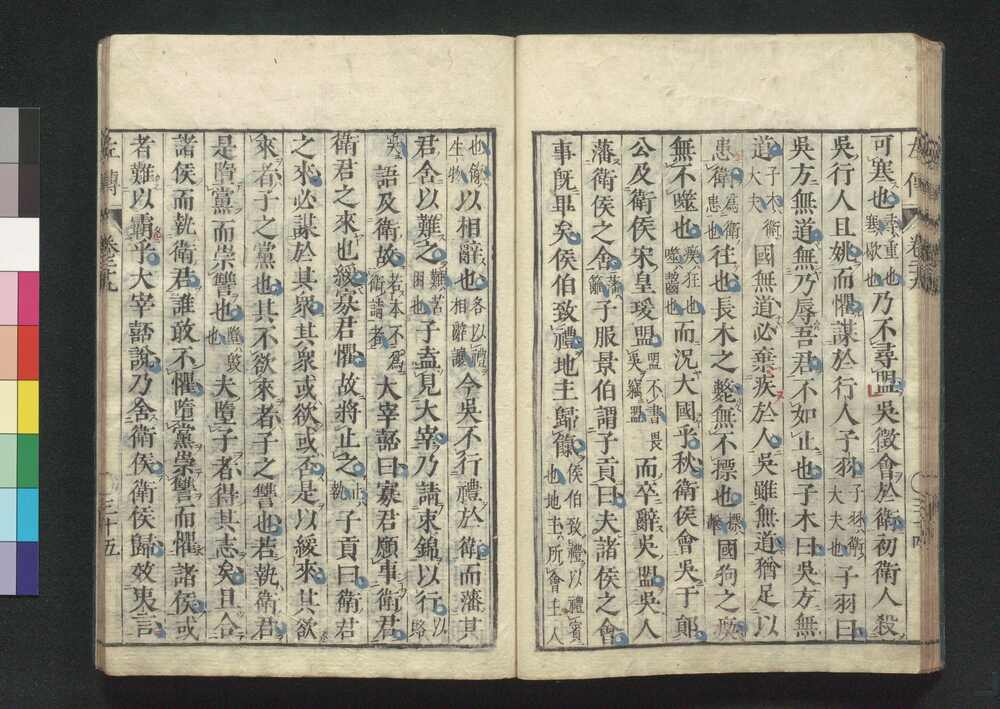 可寒也尋重也寒歇也乃不尋盟吳徵會於衛初衛人殺
吳行人且姚而懼謀於行人子羽子羽衛大夫也子羽曰
吳方無道無乃辱吾君不如止也子木曰吳方無
道子木衛大夫國無道必棄疾於人吳雖無道猶足以
患衛為衛患也往也長木之斃無不摽也摽擊國狗之瘈
無不噬也瘈狂也噬齧也而況大國乎秋衛侯會吳于鄖
公及衛侯宋皇瑗盟盟不書畏吳竊盟而卒辭吳盟吳人
藩衛侯之舍藩籬子服景伯謂子貢曰夫諸侯之會
事旣畢矣侯伯致禮地主歸餼侯伯致禮以禮賓也地主所會主人
也餼生物以相辭也各以禮相辭讓今吳不行禮於衛而藩其
君舍以難之難苦困也子盍見大宰乃請束錦以行以賂
吳語及衛故若本不為衛請者大宰嚭曰寡君願事衛君
衛君之來也緩寡君懼故將止之止執子貢曰衛君
之來必謀於其眾其眾或欲或否是以緩來其欲
來者子之黨也其不欲來者子之讐也若執衛君
是墮黨而崇讐也墮毀也夫墮子者得其志矣且合
諸侯而執衛君誰敢不懼墮黨崇讐而懼諸侯或
者難以霸乎大宰嚭說乃舍衛侯衛侯歸效夷言
左傳
卷二十九
三十五